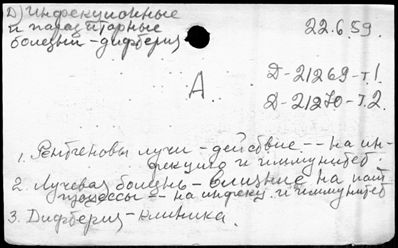 Д) Инфекционные
и паразитарные
болезни - дифтерия
22.6.59.
А.
Д-21269-т.1.
Д-21270-т.2.
1. Рентгеновы лучи - действие -- на ин-
фекцию и иммунитет.
2. Лучевая болезнь - влияние на пат.
процессы -- на инфекц. и иммунитет
3. Дифтерия - клиника.